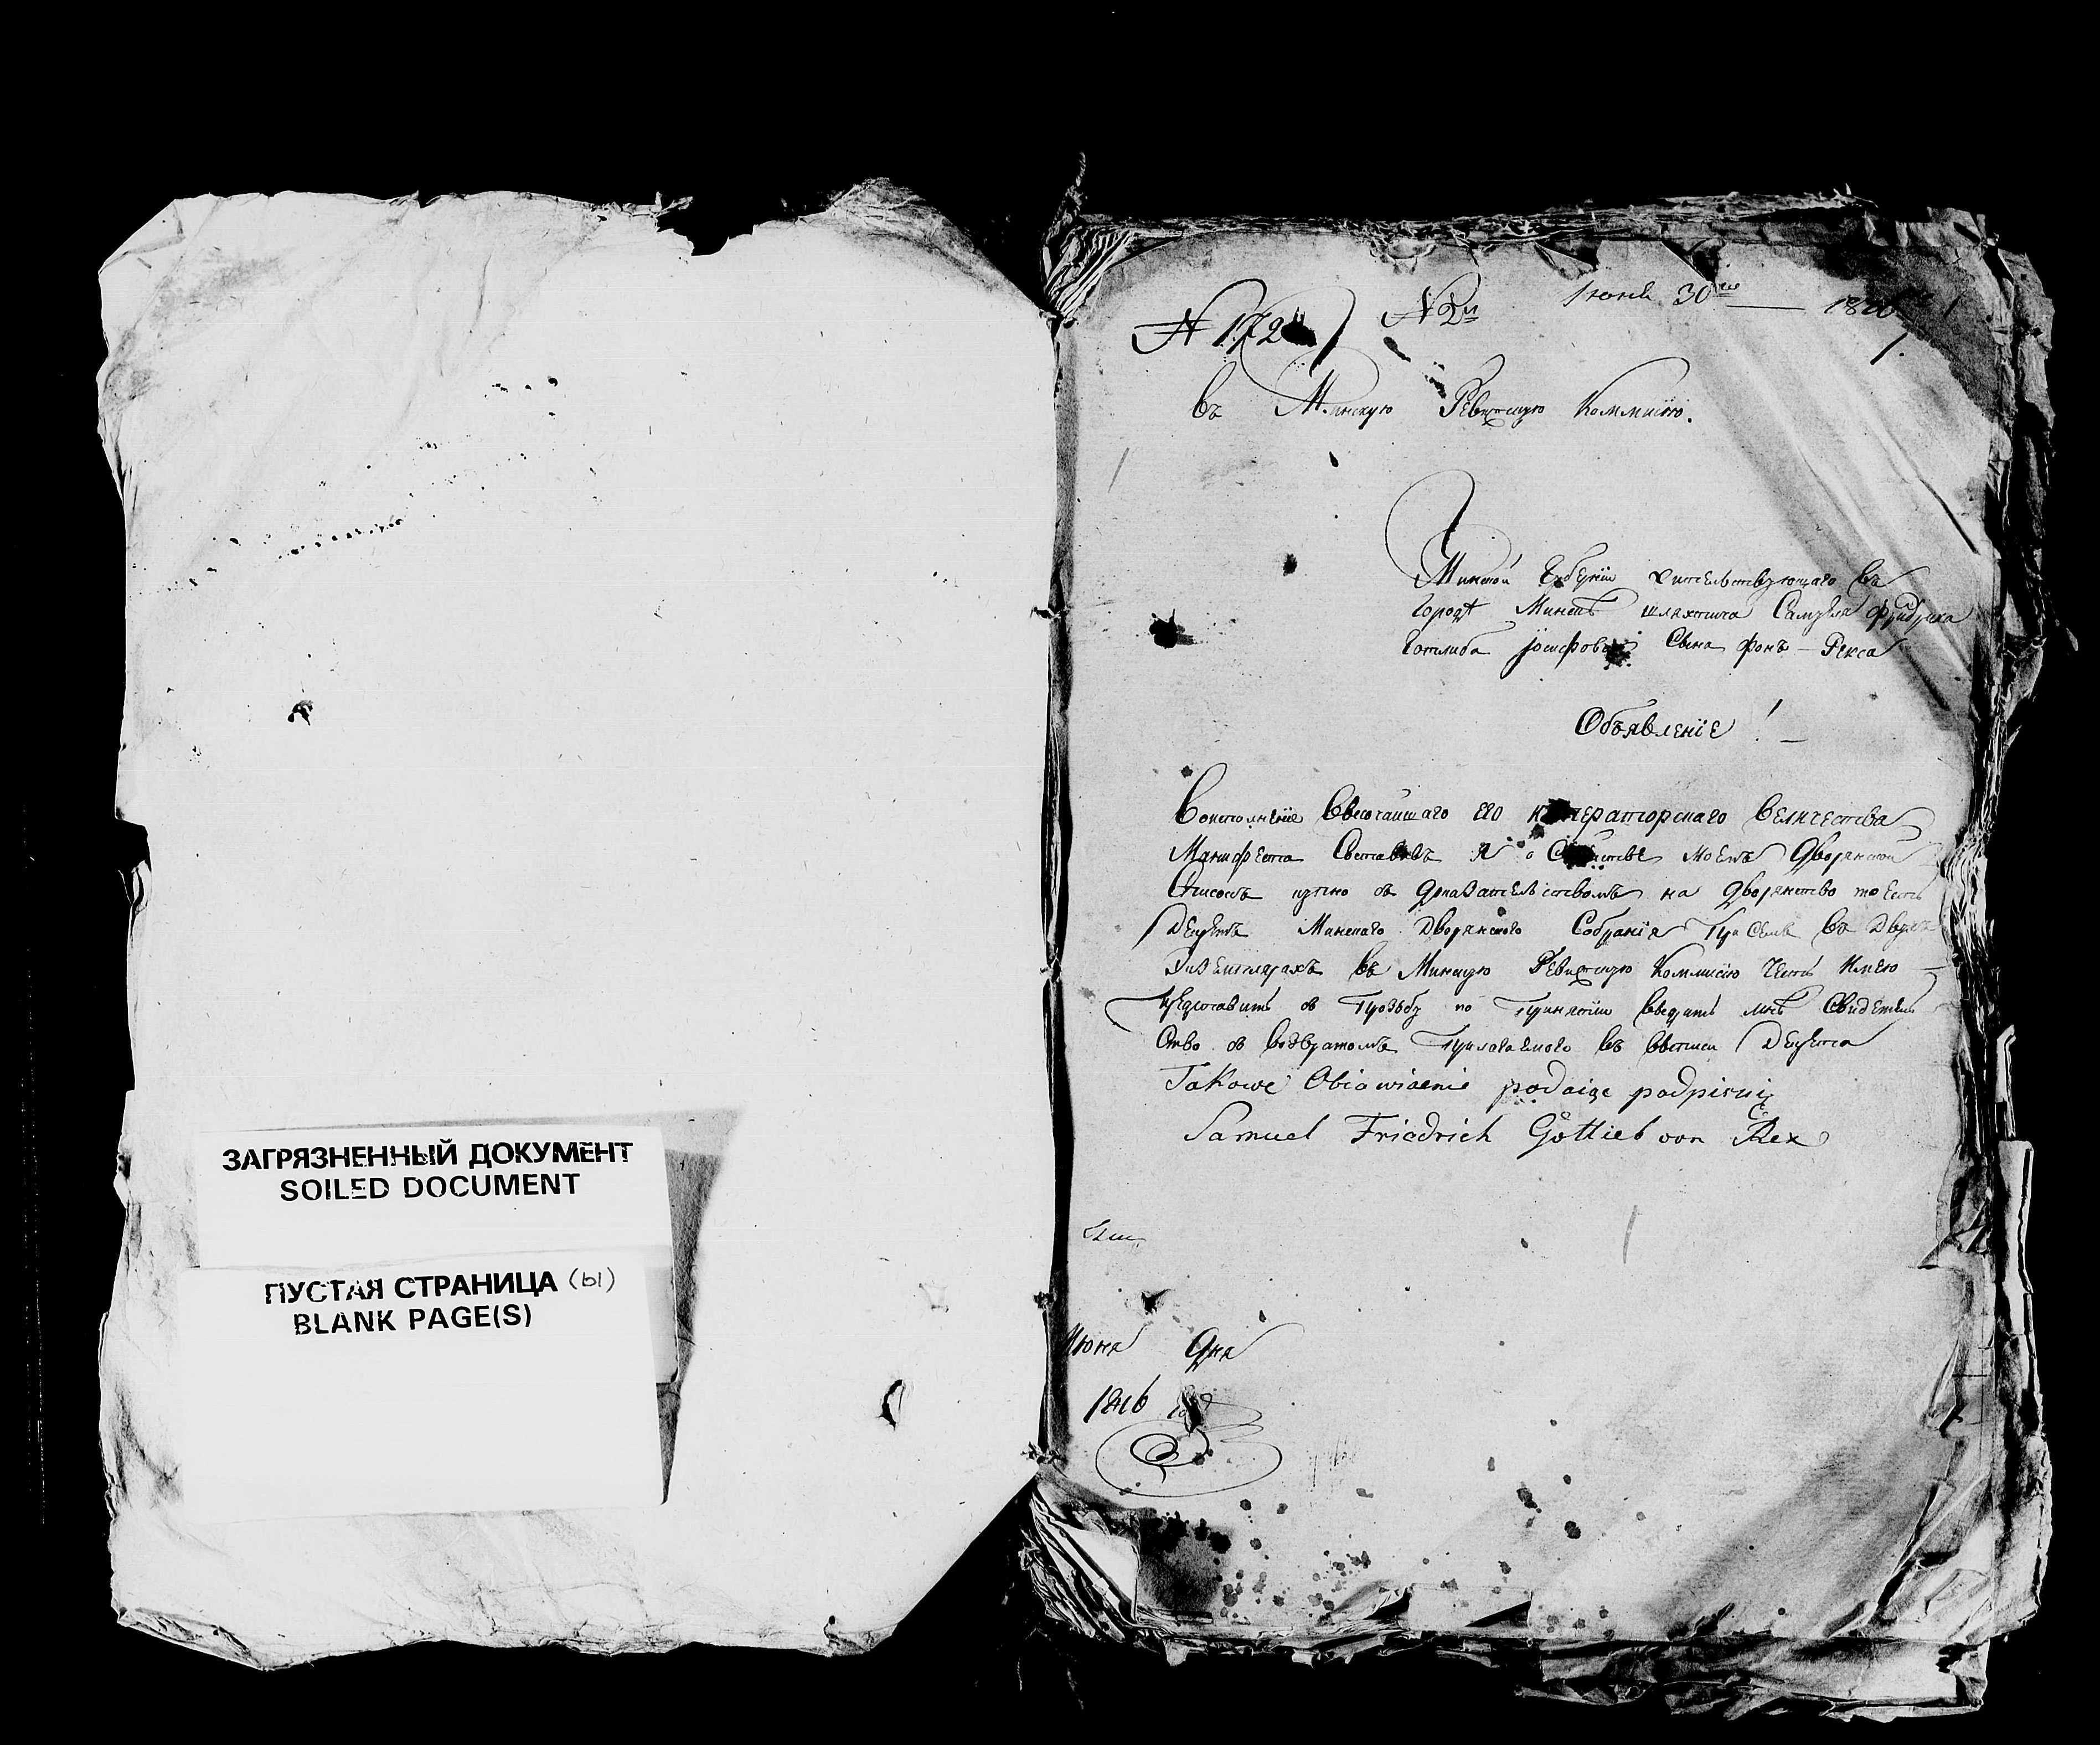 ЗАГРЯЗНЕННЫЙ ДОКУМЕНТ
SOILED DOCUMENT
ПУСТАЯ СТРАНИЦА (ы)
BLANK PAGE(S)
№ 172
Июня 30го 1816
Въ Минскую Ревизскую Коммисію.
Минской Губерніи жительствующаго въ
Городѣ Минскѣ шляхтича Самуеля Фридриха
Готлиба Іосифова Сына фонъ-Рекса
Объявленіе!
Воисполненіе Высочайшаго Его Императорскаго Величества
Манифеста Составивъ я о Семействе моемъ Дворянской
Списокъ купно съ Доказательствомъ на Дворянство то есть
Декретъ Минскаго Дворянского Собранія При Семъ въ Двухъ
Экземплярахъ въ Минскую Ревизскую Коммисію Честь Имею
представить съ Прозьбу по Принятіи Выдать мнѣ Свидетель
Ство съ Возвратомъ Прилагаемого въ Выписи Декрета
Takowe Obiawienie podaige podpisuię
Samuel Friedrich Gottlieb von Rex
Июня Дня
1816